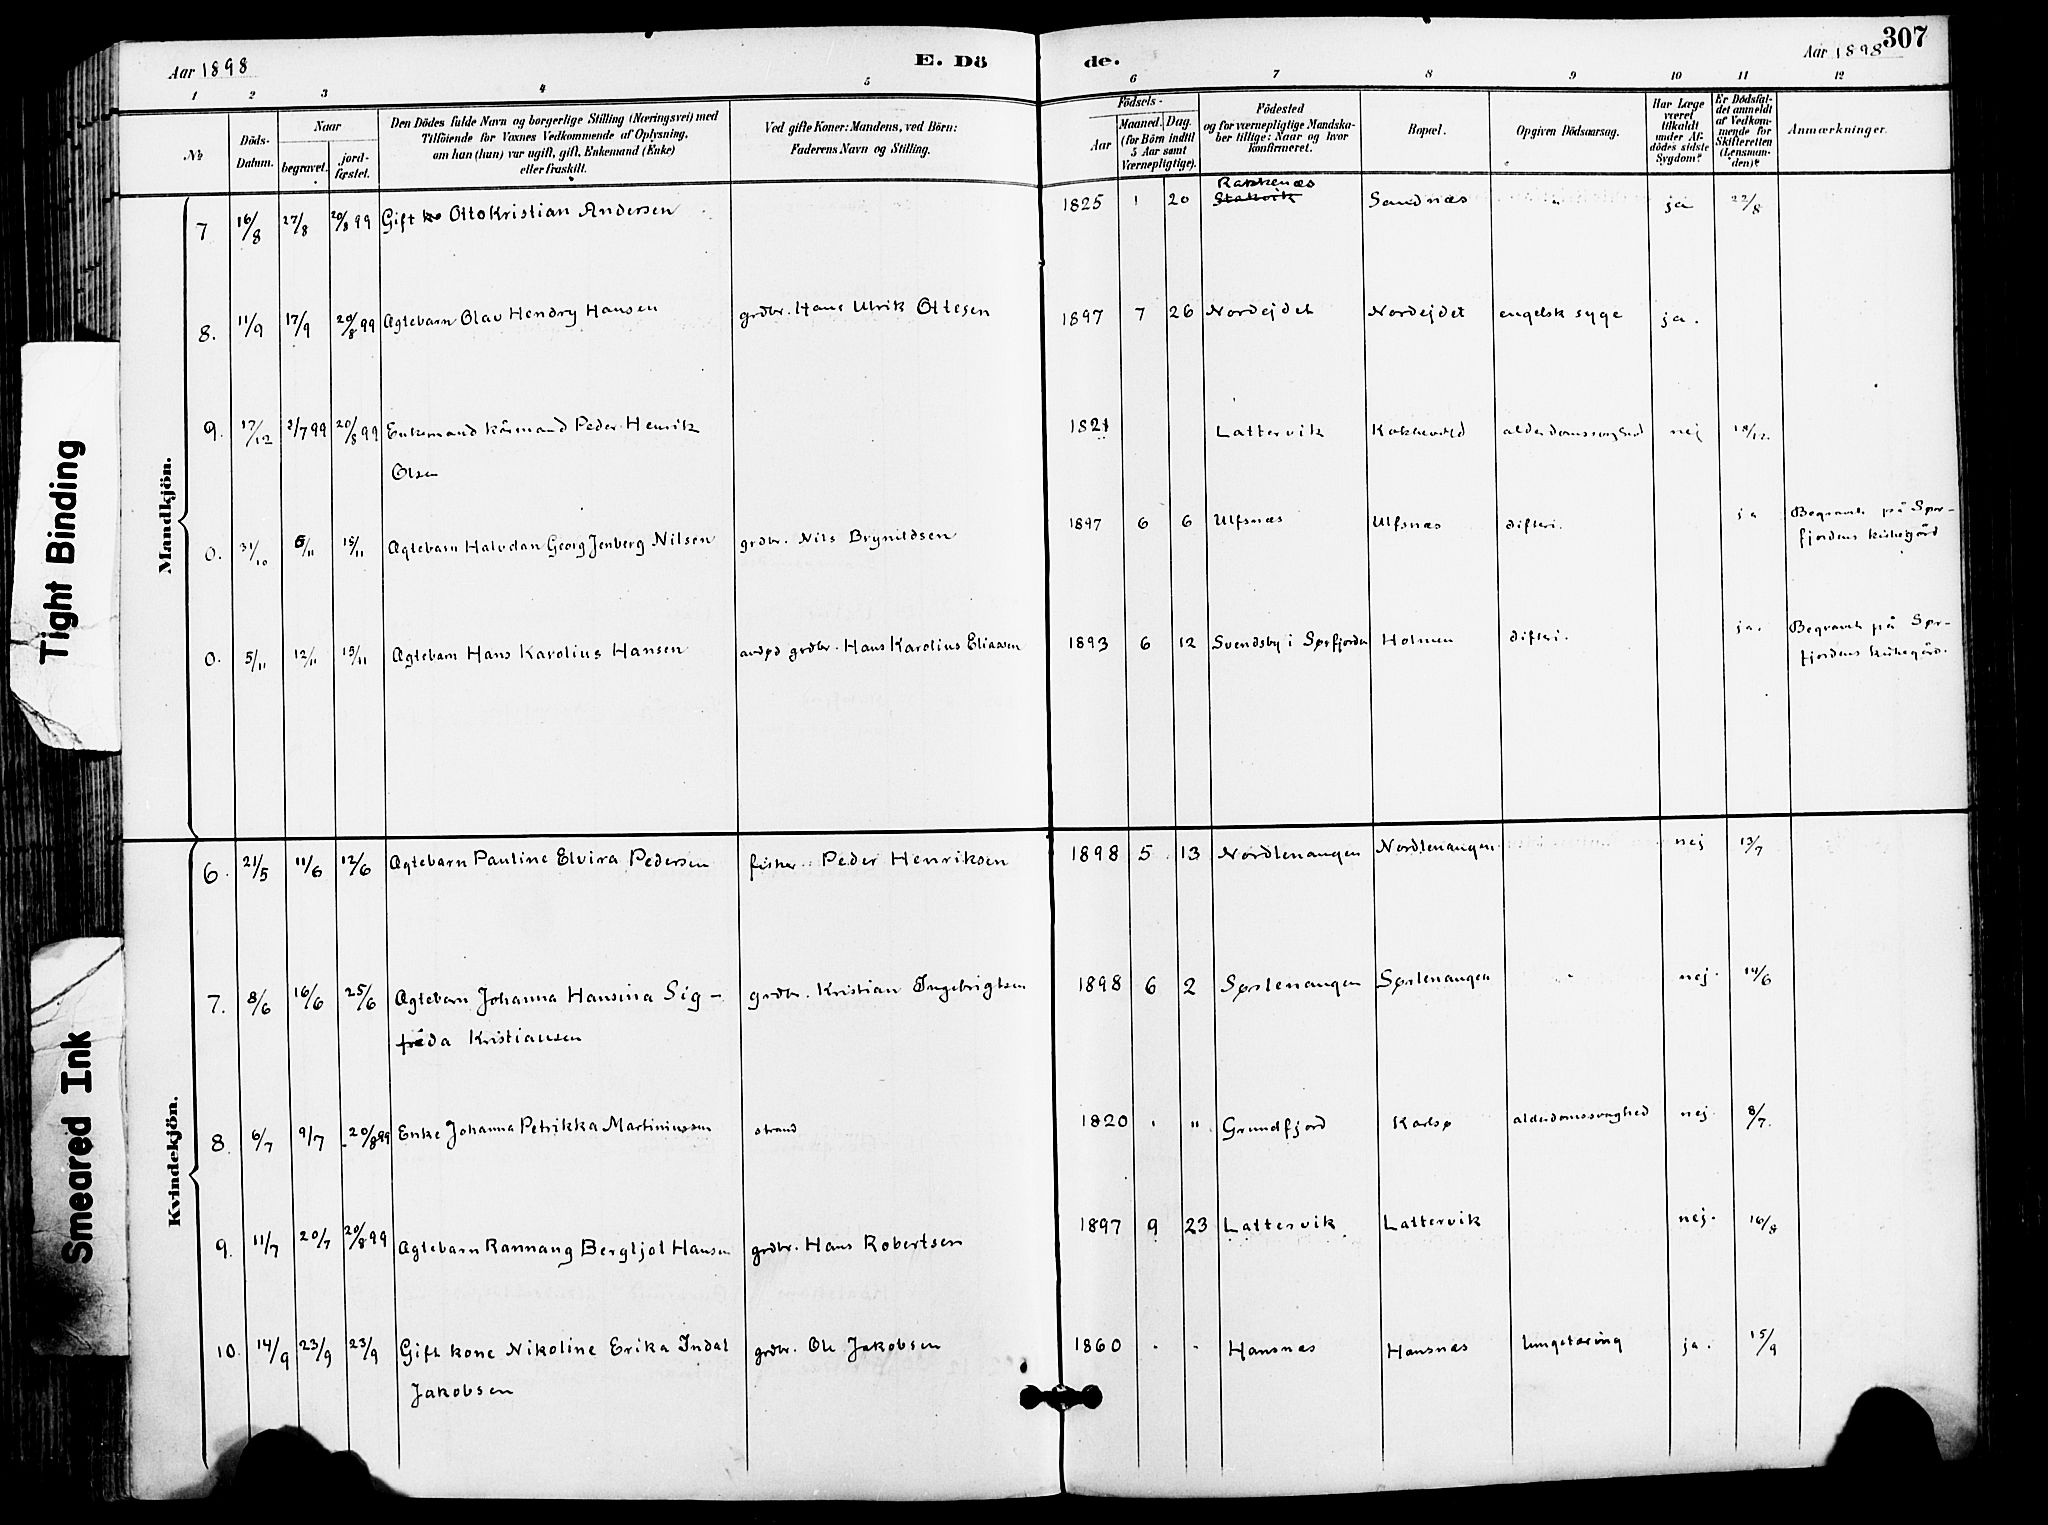 Aar 1898
E. Dö
de.
Aar 1898
307
1 2 3 4 5 6 7 8 9 10 11 12
№
Döds-
Datum.
Naar
begravet.
jord-
fæstet.
Den Dödes fulde Navn og borgerlige Stilling (Næringsvei) med
Tilföiende for Voxnes Vedkommende af Oplysning,
om han (hun) var ugift, gift, Enkemand (Enke)
eller fraskilt.
Ved gifte Koner: Mandens, ved Börn:
Faderens Navn og Stilling.
Födsels-
Aar
Maaned.
Dag.
(for Börn indtil
5 Aar samt
Værnepligtige).
Födested
og for værnepligtige Mandska-
ber tillige: Naar og hvor
konfirmeret.
Bopæl.
Opgiven Dödsaarsag.
Har Læge
været
tilkaldt
under Af-
dödes sidste
Sygdom?
Er Dödsfal-
det anmeldt
af Vedkom-
mende for
Skifteretten
(Lensman-
den)?
Anmærkninger.
Mandkjön.
Rakkenæs
7 16/8 27/8 20/8 99 Gift Otto Kristian Andersen 1825 1 20 Stakvik Sandnæs " ja 22/8
8. 11/9 17/9 20/8 99 Agtebarn Olav Hendry Hansen grdbr. Hans Ulrik Ottesen 1897 7 26 Nordejdet Nordejdet engelsk syge ja.
9. 17/12 2/7 99 20/8 99 Enkemand kårmand Peder Henrik 1821 Lattervik alderdomssvaghed nej 18/12.
Olsen
0. 31/10 6/11 15/11 Agtebarn Halvdan Georg Jenberg Nilsen grdbr. Nils Brynildsen 1897 6 6 Ulfsnæs Ulfsnæs difteri. ja Begravet på Sør-
fjordens kirkegård
0. 5/11 12/11 15/11 Agtebarn Hans Karolius Hansen avdød grdbr. Hans Karolius Eliassen 1893 6 12 Svendsby i Sørfjorden Holmen difteri. ja. Begravet på Sør-
fjordens kirkegård.
Kvindekjön.
6. 21/5 11/6 12/6 Agtebarn Pauline Elvira Pedersen fisker Peder Henriksen 1898 5 13 Nordlenangen Nordlenangen nej 13/7
7. 8/6 16/6 25/6 Agtebarn Johanna Hansina Sig- grdbr. Kristian Ingebrigtsen 1898 6 2 Sørlenangen Sørlenangen " nej. 14/6
frida Kristiansen
8. 6/7 9/7 20/8 99 Enke Johanna Petrikka Martiniussen strand 1820 " " Grundfjord Karlsø alderdomssvaghed nej 8/7.
9. 11/7 20/7 20/8 99 Agtebarn Rannaug Bergljot Hansen grdbr. Hans Robertsen 1897 9 23 Lattervik Lattervik nej. 16/8
10. 14/9 23/9 23/9 Gift kone Nikoline Erika Indal grdbr. Ole Jakobsen 1860 " " Hansnæs Hansnæs lungetæring ja. 15/9
Jakobsen
Tight Binding
Smeared Ink